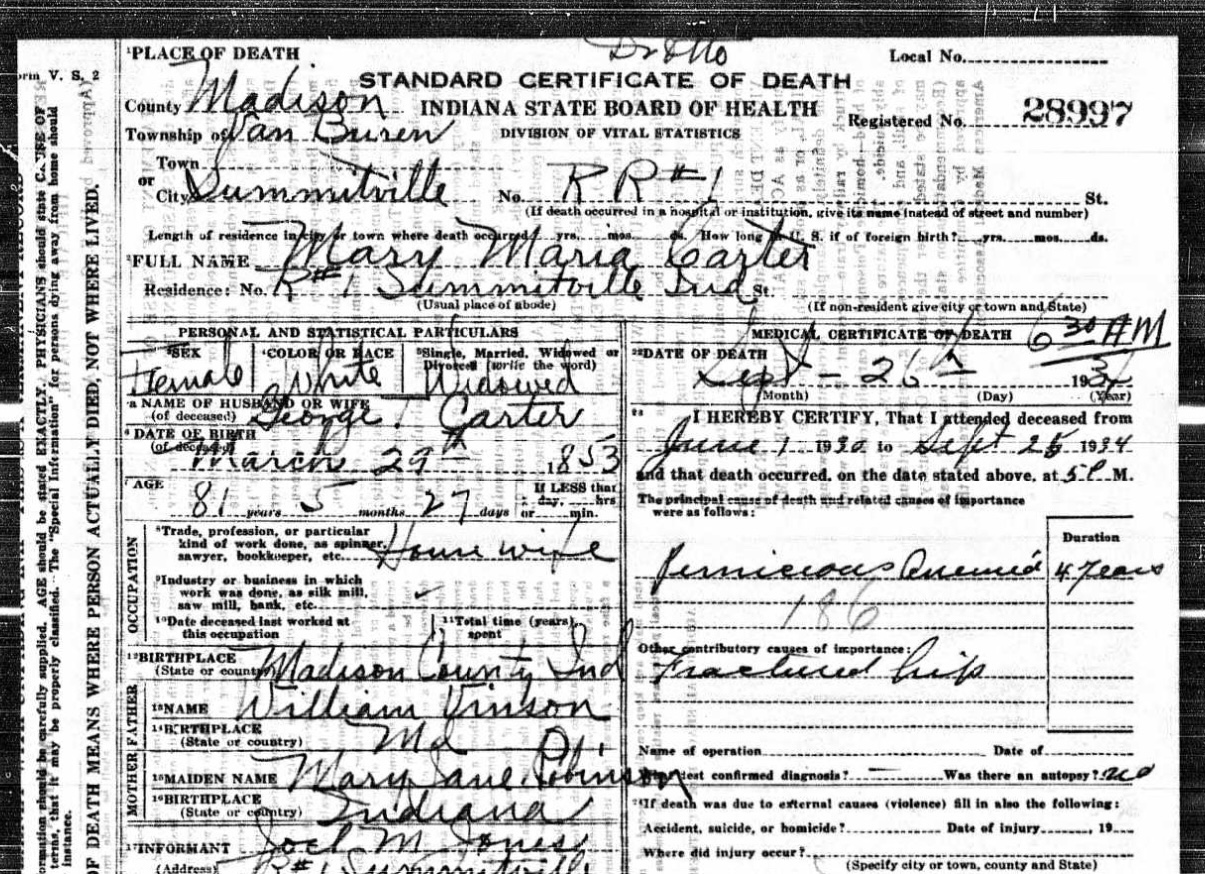 Local No.
¹PLACE OF DEATH
STANDARD CERTIFICATE OF DEATH
County Madison
INDIANA STATE BOARD OF HEALTH
Registered No. 28997
Township of Van Buren
DIVISION OF VITAL STATISTICS
Town
or
City Summitville No. R R #1 St.
(If death occurred in a hospital or institution, give its name instead of street and number)
Length of residence in city or town where death occurred yrs. mos. ds. How long in U. S. if of foreign birth? yrs. mos. ds.
²FULL NAME Mary Maria Carter
Residence: No. R#1 Summitville Ind St.
(Usual place of abode) (If non-resident give city or town and State)
PERSONAL AND STATISTICAL PARTICULARS
³SEX Female
⁴COLOR OR RACE White
⁵Single, Married, Widowed or
Divorced (write the word)
Widowed
a NAME OF HUSBAND OR WIFE
(of deceased) George T. Carter
⁶DATE OF BIRTH
(of deceased)
March 29th 1853
⁷AGE If LESS than
81 years 5 months 27 days
day, hrs
or min.
OCCUPATION
⁸Trade, profession, or particular
kind of work done, as spinner,
sawyer, bookkeeper, etc. House wife
⁹Industry or business in which
work was done, as silk mill,
saw mill, bank, etc.
¹⁰Date deceased last worked at
this occupation
¹¹Total time (years)
spent
¹²BIRTHPLACE
(State or country) Madison County Ind
FATHER
¹³NAME William Vinson
¹⁴BIRTHPLACE
(State or country) Md
MOTHER
¹⁵MAIDEN NAME Mary Jane Robinson
¹⁶BIRTHPLACE
(State or country) Indiana
¹⁷INFORMANT Joel M Jones
(Address) R#1 Summitville
MEDICAL CERTIFICATE OF DEATH 6 30 AM
²²DATE OF DEATH
Sept - 26th 1934
(Month) (Day) (Year)
I HEREBY CERTIFY, That I attended deceased from
June 1 1930 to Sept 25 1934
and that death occurred, on the date stated above, at 5 P M.
The principal cause of death and related causes of importance
were as follows:
Duration
Pernicious Anemia 4 years
186
Other contributory causes of importance:
Fractured hip
Name of operation Date of
What test confirmed diagnosis? Was there an autopsy? no
If death was due to external causes (violence) fill in also the following:
Accident, suicide, or homicide? Date of injury , 19
Where did injury occur?
(Specify city or town, county and State)
orm V. S. 2
ormation should be carefully supplied. AGE should be stated EXACTLY. PHYSICIANS should state CAUSE OF
terms, that it may be properly classified. The "Special Information" for persons dying away from home should
instance.
OF DEATH MEANS WHERE PERSON ACTUALLY DIED, NOT WHERE LIVED.